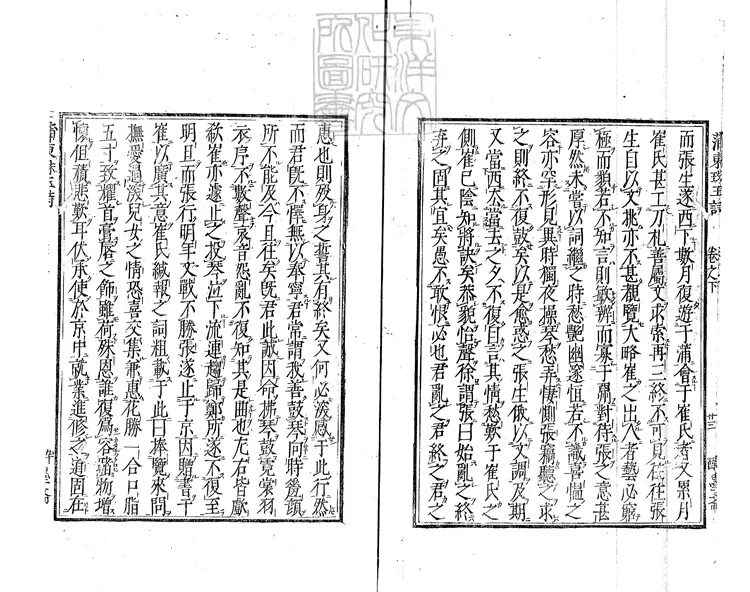 蒲東珠玉詩 卷之下
而張生遂西下數月復遊于蒲會于崔氏者又累月
崔氏甚工刀札善屬文求索再三終不可見往往張
生自以文挑亦不甚覩覽大略崔之出人者藝必窮
極而貌若不知言則敏辨而寡于酬對待張之意甚
厚然未嘗以詞繼之時愁艷幽邃恒若不識喜慍之
容亦罕形見異時獨夜操琴愁弄悽惻張竊聽之求
之則終不復鼓矣以是愈惑之張生俄以文調及期
又當西去當去之夕不復自言其情愁歎于崔氏之
側崔已陰知將訣矣恭貌怡聲徐謂張曰始亂之終
棄之固其宜矣愚不敢恨必也君亂之君終之君之
惠也則歿身之誓其有終矣又何必深感于此行然
而君既不懌無以奉寧君常謂我善鼓琴向時羞顔
所不能及今且往矣既君此誠因命拂琴鼓霓裳羽
衣序不數聲哀音怨亂不復知其是曲也左右皆歔
欷崔亦遽止之投琴泣下流連趨歸鄭所遂不復至
明旦而張行明年文戰不勝張遂止于京因贈書于
崔以廣其意崔氏緘報之詞粗載于此曰捧覽來問
撫愛過深兒女之情恐喜交集兼惠花勝一合口脂
五寸致耀首膏唇之飾雖荷殊恩誰復爲容覩物增
懷但積悲歎耳伏承使於京中就業進修之道固在